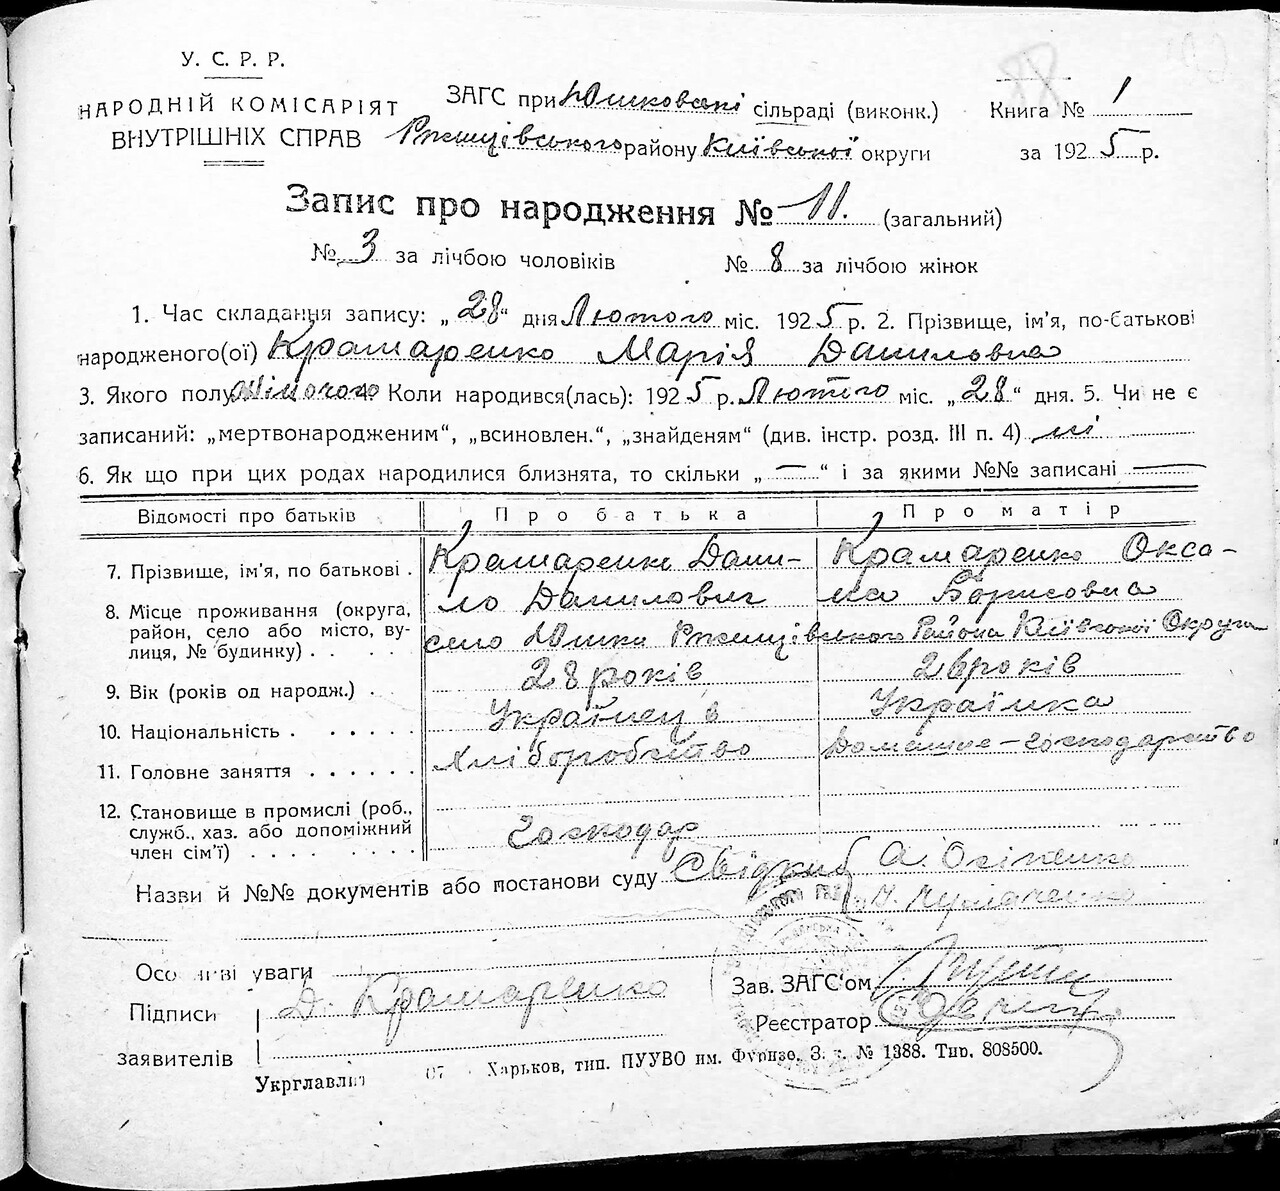 У. С. Р. Р.
НАРОДНІЙ КОМІСАРІЯТ
ВНУТРІШНІХ СПРАВ
ЗАГС при Юшковані сільраді (виконк.)
Ржищівського району Київської округи
Книга № 1
за 1925 р.
Запис про народження № 11. (загальний)
№ 3 за лічбою чоловіків № 8 за лічбою жінок
1. Час складання запису: „28“ дня Лютого міс. 1925 р. 2. Прізвище, ім’я, по-батькові
народженого(ої) Крамаренко Марія Даниловна
3. Якого полу жіночого 4. Коли народився(лась): 1925 р. Лютого міс. „28“ дня. 5. Чи не є
записаний: „мертвонародженим“, „всиновлен.“, „знайденям“ (див. інстр. розд. III п. 4) ні
6. Як що при цих родах народилися близнята, то скільки „—“ і за якими №№ записані —
Відомості про батьків Про батька Про матір
7. Прізвище, ім’я, по батькові . Крамаренко Дани- Крамаренко Окса-
ло Данилович на Борисовна
8. Місце проживання (округа,
район, село або місто, ву-
лиця, № будинку) . . . . село Юшки Ржищівського Района Київської Округи
9. Вік (років од народж.) . . 28 років 26 років
10. Національність . . . . . . Українец Українка
11. Головне заняття . . . . . . Хліборобство Домашнє-господарство
12. Становище в промислі (роб.,
служб., хаз. або допоміжний
член сім’ї) . . . . . . . . Господар
Назви й №№ документів або постанови суду Свідки А. Осіпенко
Особливі уваги
Підписи Д. Крамаренко
заявителів
Зав. ЗАГС’ом
Реєстратор
Укрглавліт Харьков, тип. ПУУВО им. Фрунзе. З. т. № 1388. Тир. 808500.